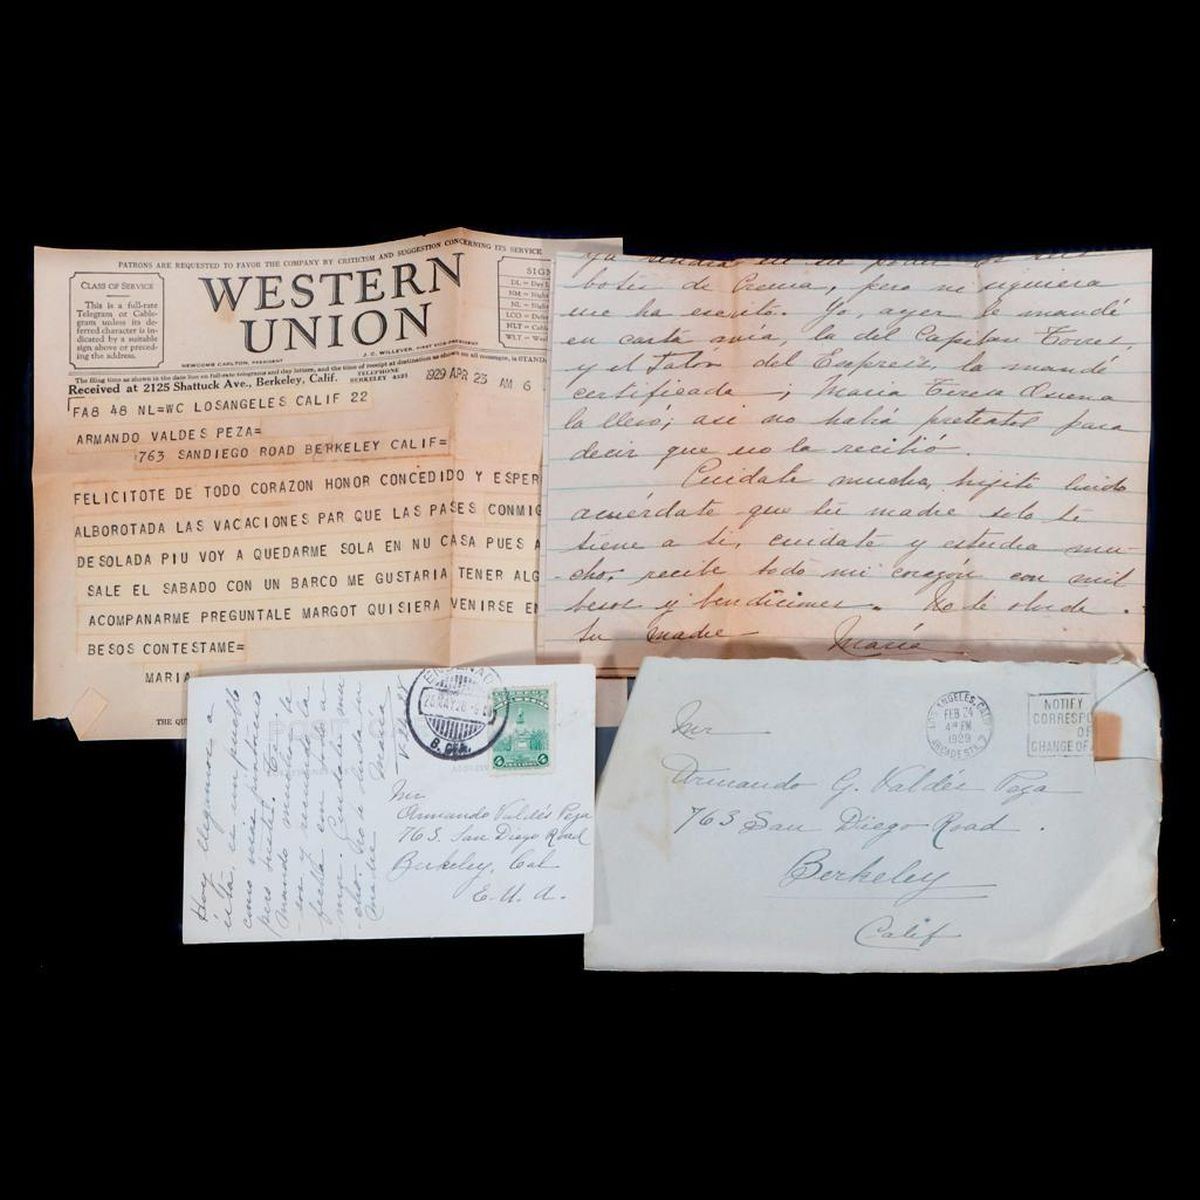 PATRONS ARE REQUESTED TO FAVOR THE COMPANY BY CRITICISM AND SUGGESTION CONCERNING ITS SERVICE
CLASS OF SERVICE
This is a full-rate
Telegram or Cable-
gram unless its de-
ferred character is in-
dicated by a suitable
sign above or preced-
ing the address.
WESTERN
UNION
SIGN
DL = Day L
NM = Night
NL = Night
LCO = Defer
NLT = Cabl
WLT = Week
NEWCOMB CARLTON, PRESIDENT
J. C. WILLEVER, FIRST VICE-PRESIDENT
The filing time as shown in the date line on full-rate telegrams and day letters, and the time of receipt at destination as shown on all messages, is STAND
Received at 2125 Shattuck Ave., Berkeley, Calif.
TELEPHONE
BERKELEY
1929 APR 23 AM 6
FA8 48 NL=WC LOSANGELES CALIF 22
ARMANDO VALDES PEZA=
763 SANDIEGO ROAD BERKELEY CALIF=
FELICITOTE DE TODO CORAZON HONOR CONCEDIDO Y ESPER
ALBOROTADA LAS VACACIONES PAR QUE LAS PASES CONMIG
DESOLADA PIU VOY A QUEDARME SOLA EN NU CASA PUES A
SALE EL SABADO CON UN BARCO ME GUSTARIA TENER ALG
ACOMPANARME PREGUNTALE MARGOT QUISIERA VENIRSE EN
BESOS CONTESTAME=
MARIA
THE QU
botes de Crema, pero ni siquiera
me ha escrito. Yo, ayer le mandé
en carta mía, la del Capitan Torres,
y el Talón del Express, la mandé
certificada; Maria Teresa
la llevó; asi no habrá pretextos para
decir que no la recibió.
Cuidate mucho, hijito lindo
acuérdate que tu madre solo te
tiene a ti, cuidate y estudia mu-
-cho, recibe todo mi corazón con mil
besos y bendiciones. No te olvida
tu madre María
Hoy llegamos a
ésta, es un pueblo
como mas pintoresco
pero triste. Te
mando muchos be
-sos y recuerda la
fecha con todo a-
mor. Cuidate mu
cho. No te olvida tu
madre María
ENSENADA
25 MAY 28
B. CFA.
Mr
Armando Valdés Peza
763. San Diego Road
Berkeley, Cal
E. U. A.
LOS ANGELES, CALIF.
FEB 24
4 PM
1929
ARCADE STA. 2
NOTIFY
CORRESPO
OF
CHANGE OF A
Mr
Armando G. Valdés Peza
763 San Diego Road.
Berkeley
Calif